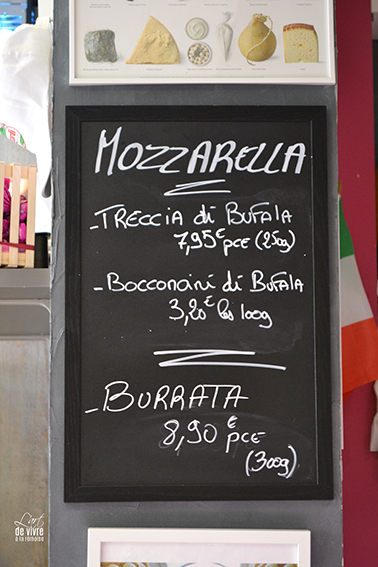 MOZZARELLA
- TRECCIA di BUFALA
7,95€ pce (250g)
- BOCCONCINI di BUFALA
3,20€ les 100g
- BURRATA
8,90€ pce
(300g)
L'art
de vivre
à la romaine